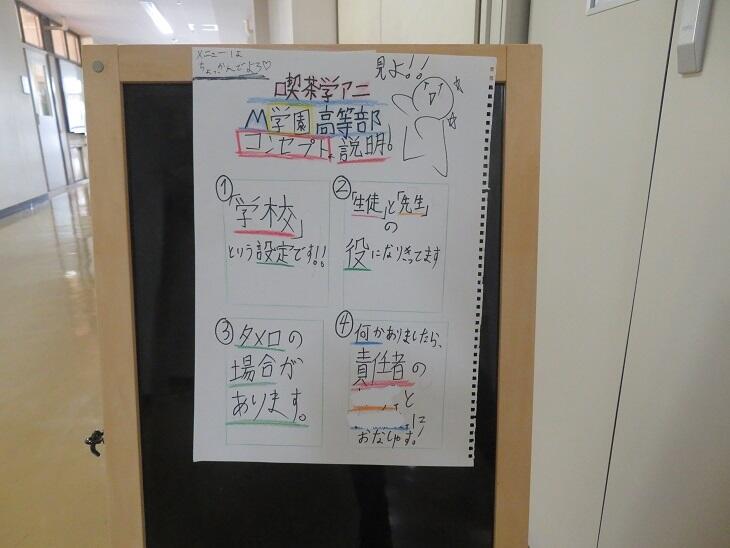 メニューは
ちょっかんでよろ♡
見よ!!
喫茶学アニ
M学園高等部
コンセプト説明!
①「学校」
という設定です!!
②「生徒」と「先生」
の
役になりきってます
③タメ口の
場合が
あります。
④何かありましたら、
責任者の
と
に
おなしゃす!